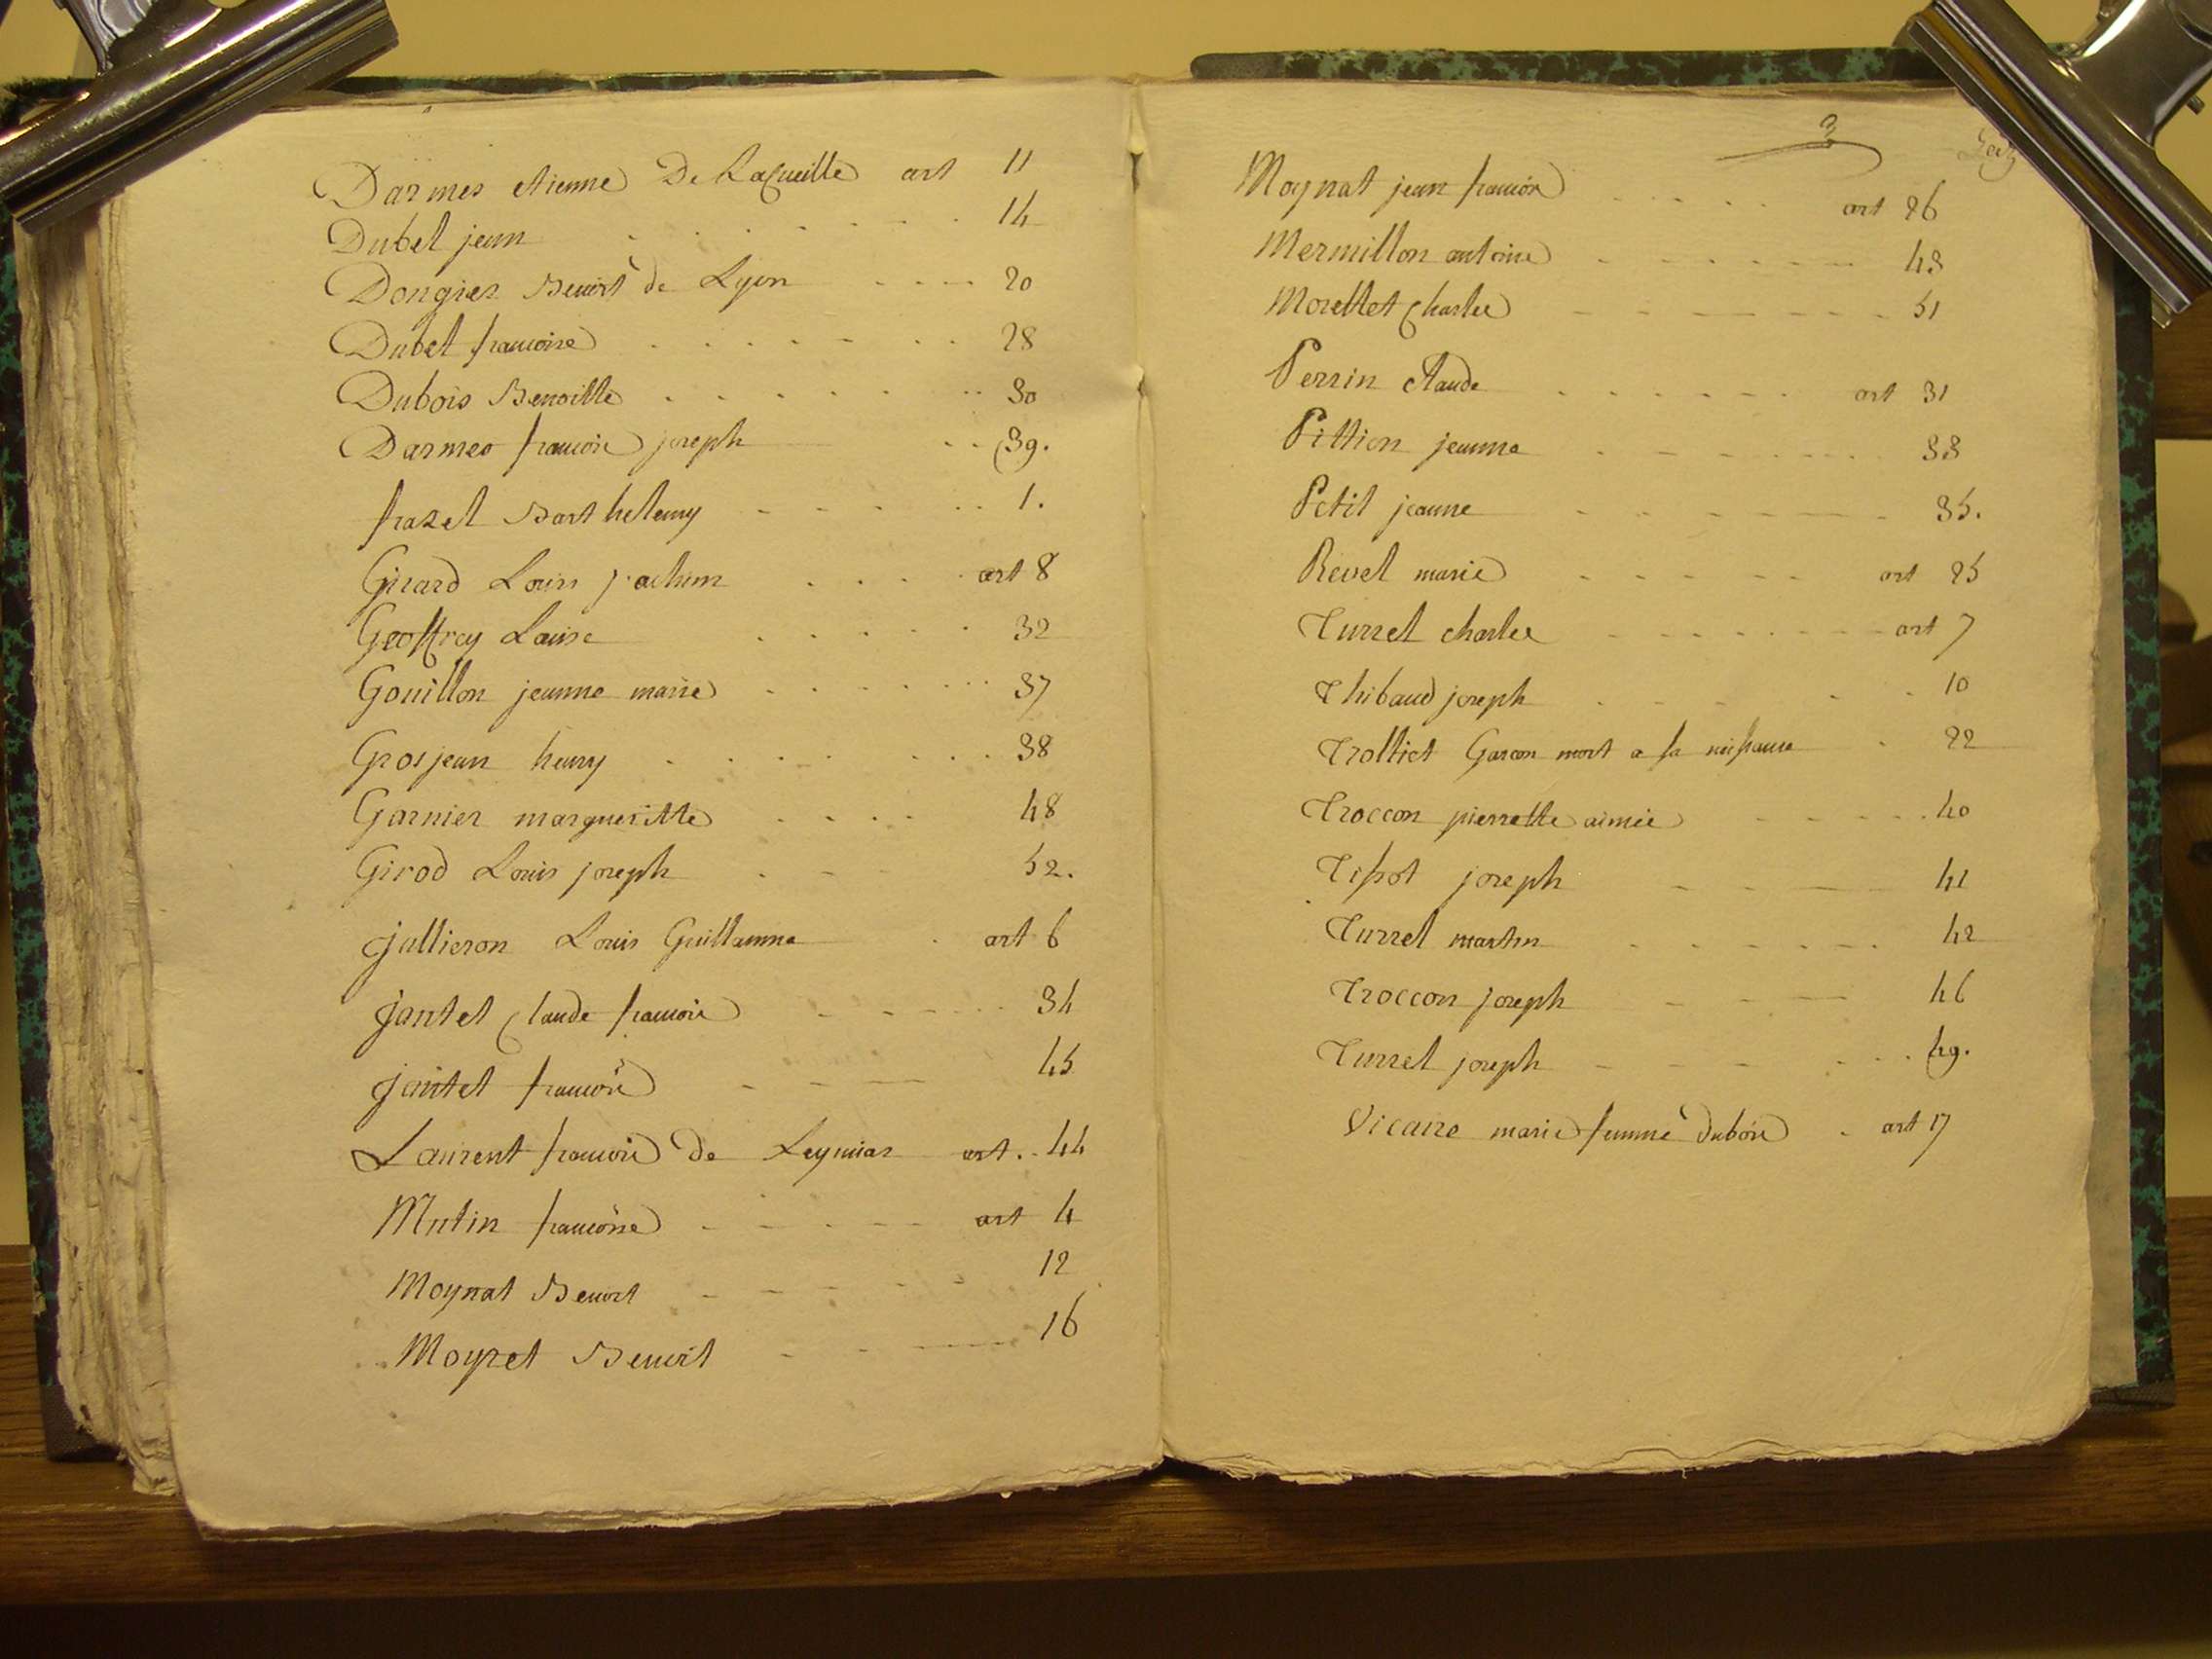 Darmes etienne De Lacueille art 11
Dubet jean 14
Dongier Benoit de Lyon 20
Dubet francoise 28
Dubois Benoitte 30
Darmes francois joseph 39.
frazet Barthelemy 1.
Girard Louis joachim art 8
Geoffray Louise 32
Gouillon jeanne marie 37
Grosjean henry 38
Garnier margueritte 48
Girod Louis joseph 52.
jullieron Louis Guillaume art 6
jantet Claude francois 34
jantet francois 45
Laurent francois de Leymiar art. 44
Mutin francoise art 4
Moynat Benoit 12
Moyret Benoit 16
3
Moynat jean francois art 26
Mermillon antoine 43
Morellet Charles 51
Perrin Claude art 31
Pittion jeanne 33
Petit jeanne 35.
Revel marie art 25
Turrel charles art 7
Thibaud joseph 10
Trolliet Garcon mort a sa naissance 22
Troccon pierrette aimée 40
Tissot joseph 41
Turrel martin 42
Troccon joseph 46
Turrel joseph 49.
Vicaire marie femme dubois art 17